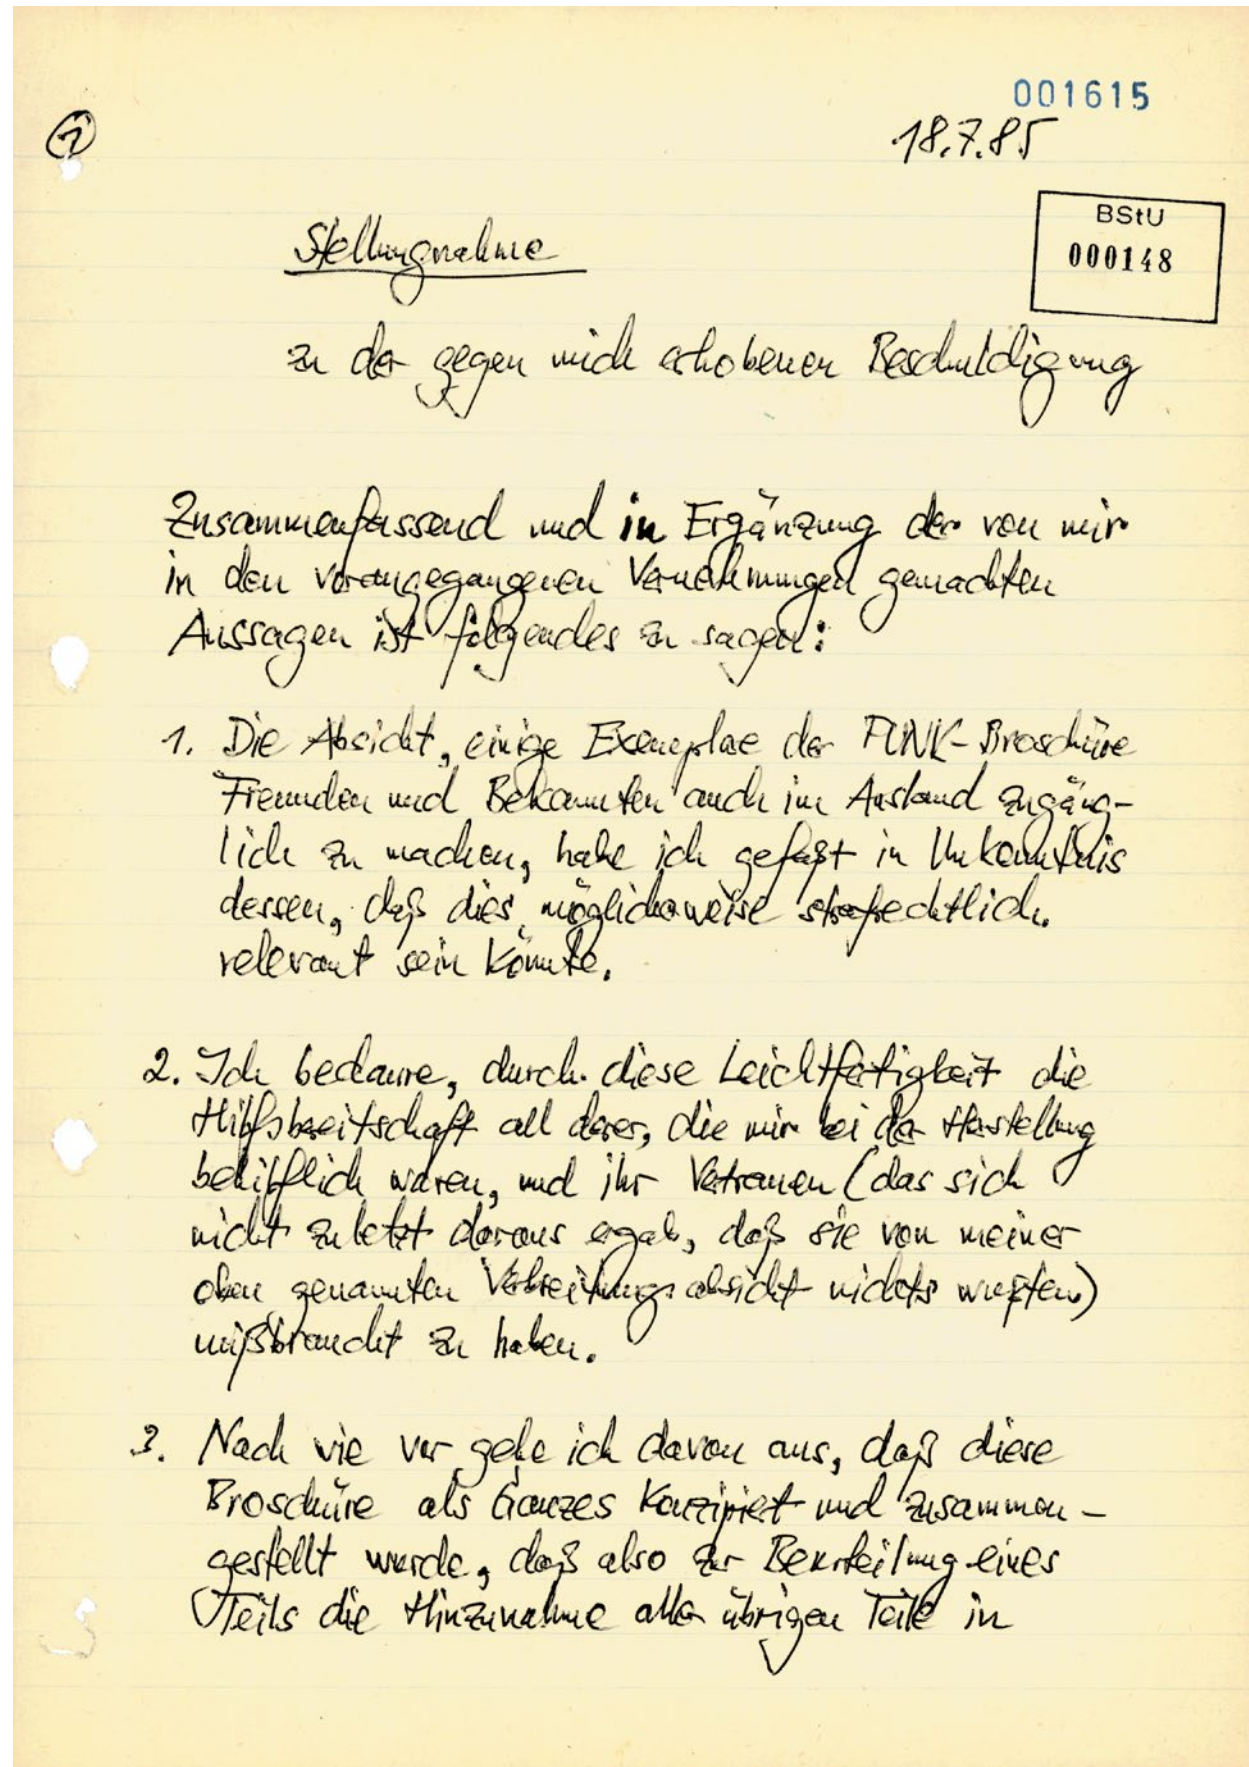 001615
7
18.7.85
BStU
000148
Stellungnahme
zu der gegen mich erhobenen Beschuldigung
Zusammenfassend und in Ergänzung der von mir
in den vorangegangenen Vernehmungen gemachten
Aussagen ist folgendes zu sagen:
1. Die Absicht, einige Exemplare der FUNK-Broschüre
Freunden und Bekannten auch im Ausland zugäng-
lich zu machen, habe ich gefaßt in Unkenntnis
dessen, daß dies möglicherweise strafrechtlich
relevant sein könnte.
2. Ich bedaure, durch diese Leichtfertigkeit die
Hilfsbereitschaft all derer, die mir bei der Herstellung
behilflich waren, und ihr Vertrauen (das sich
nicht zuletzt daraus ergab, daß sie von meiner
oben genannten Verbreitungsabsicht nichts wußten)
mißbraucht zu haben.
3. Nach wie vor gehe ich davon aus, daß diese
Broschüre als Ganzes konzipiert und zusammen-
gestellt wurde, daß also zur Beurteilung eines
Teils die Hinzunahme aller übrigen Teile in